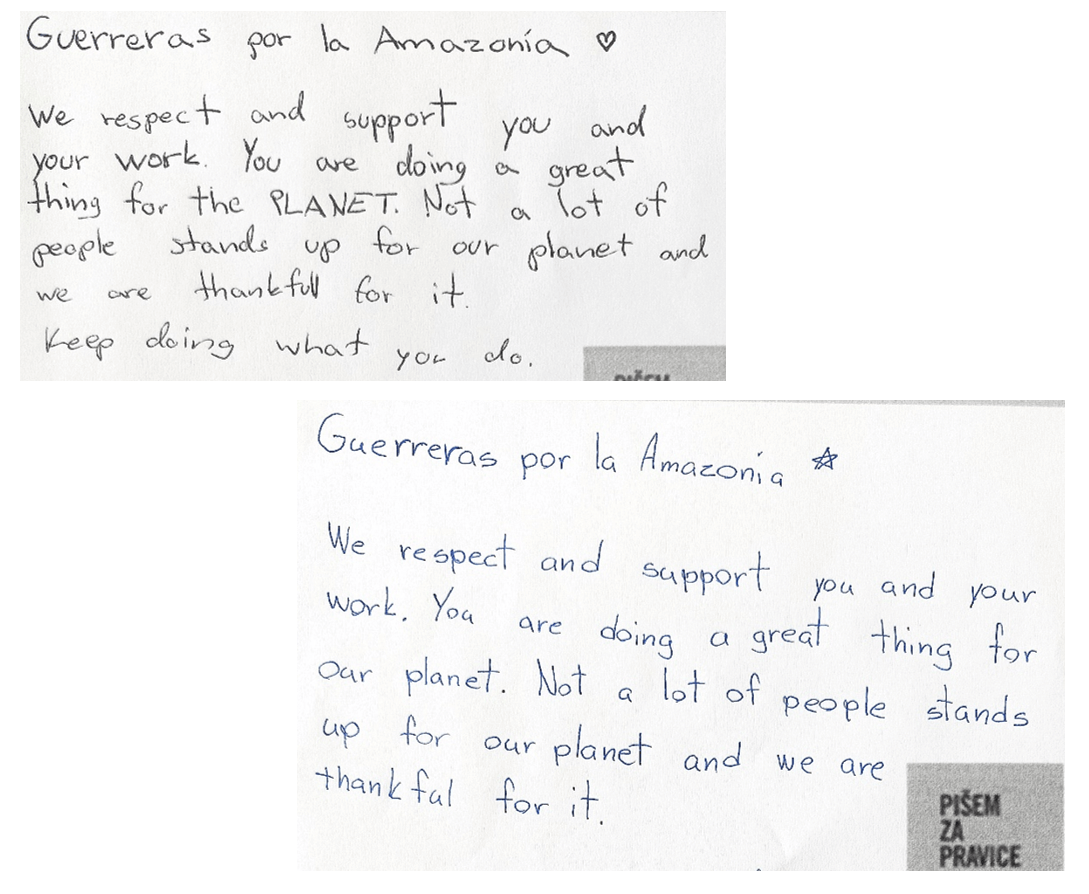 Guerreras por la Amazonía ♡
We respect and support you and
your work. You are doing a great
thing for the PLANET. Not a lot of
people stands up for our planet and
we are thankfull for it.
Keep doing what you do.
PIŠEM
Guerreras por la Amazonía ☆
We respect and support you and your
work. You are doing a great thing for
our planet. Not a lot of people stands
up for our planet and we are
thankful for it.
PIŠEM
ZA
PRAVICE